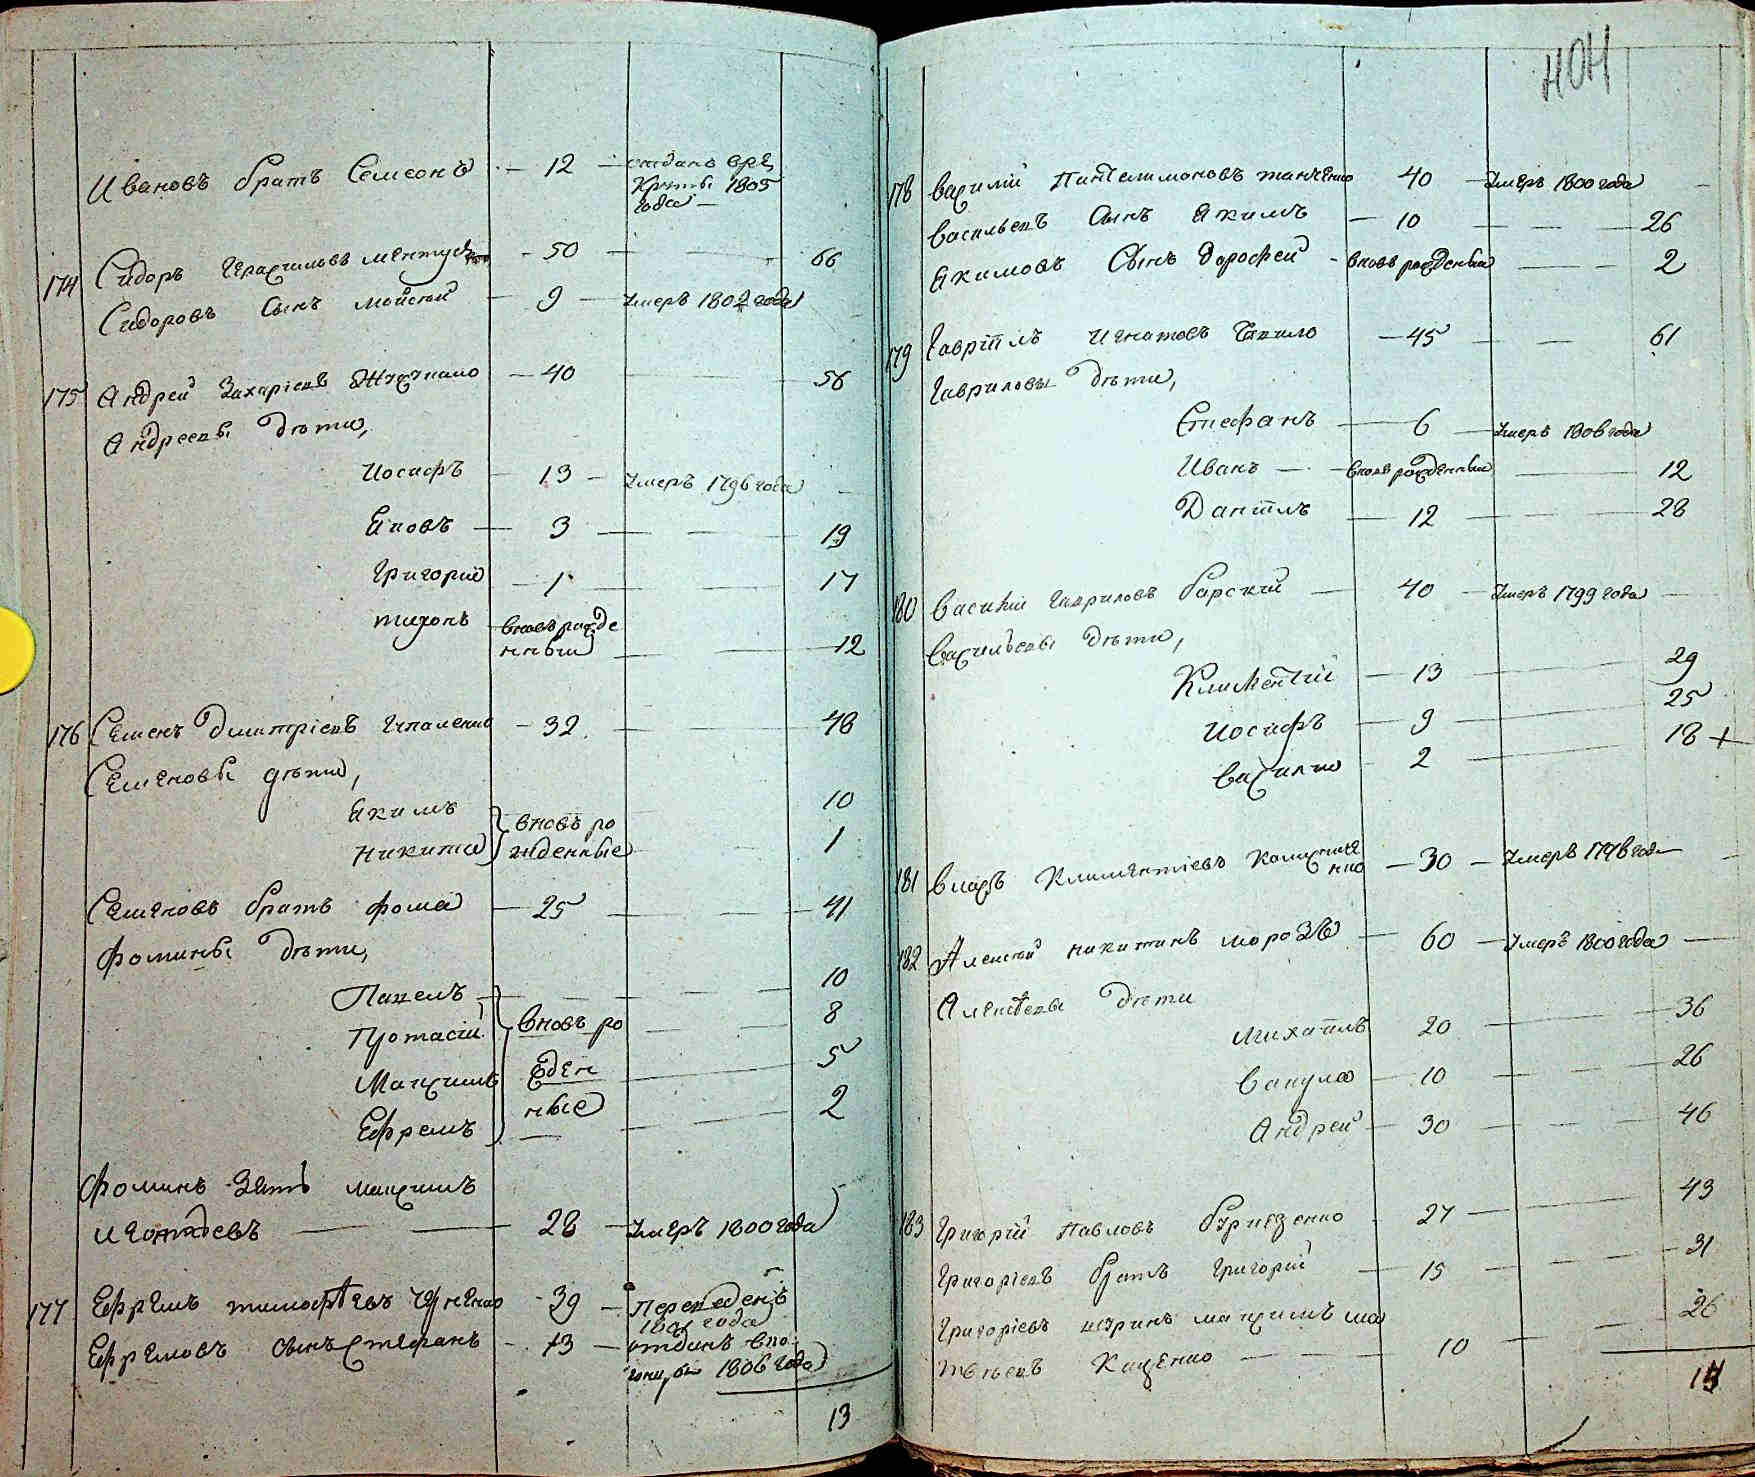 Ивановъ братъ Семионъ — 12 — отданъ врѣ
круты 1805
года —
174 Сидоръ Герасимовъ — 50 — 66
Сидоровъ сынъ Мойсей — 9 — Умеръ 1802 года
175 Андрей Захаріевъ — 40 — 56
Андреевы дѣти,
Иосифъ — 13 — Умеръ 1796 года —
Яковъ — 3 — 19
Григорій — 1 — 17
Тихонъ вновь рожде
нный — 12
176 Семенъ Дмитріевъ — 32 — 48
Семеновы дѣти,
Якимъ вновь ро 10
Никита жденные 1
Семеновъ братъ Фома — 25 — 41
Фомины дѣти,
Павелъ — 10
Протасій вновь ро — 8
Максимъ жден — 5
Ефремъ ные — 2
Фоминъ зять Максимъ
— 28 — Умеръ 1800 года
177 Ефремъ Тимофѣевъ — 39 — Переведенъ
1801 года
Ефремовъ сынъ Стефанъ — 13 — отданъ впо
1806 года
13
НОН
178 Василій Пантелимоновъ 40 — Умеръ 1800 года —
Васильевъ сынъ Якимъ — 10 — 26
Якимовъ сынъ Дорофей — вновь рожденный — 2
179 Гавріилъ Игнатовъ — 45 — 61
Гавриловы дѣти,
Стефанъ — 6 — Умеръ 1806 года
Иванъ — вновь рожденный — 12
Даніилъ — 12 — 28
180 Василій Гавриловъ Барскій — 40 — Умеръ 1799 года —
Васильевы дѣти,
Климентій — 13 — 29
Иосифъ — 9 — 25
Василій — 2 — 18 +
181 Власъ Климентіевъ — 30 — Умеръ 1796 года —
182 Алексѣй Никитинъ Морозъ — 60 — Умеръ 1800 года —
Алексѣевы дѣти
Михаилъ 20 — 36
Вакула — 10 — 26
Андрей — 30 — 46
183 Григорій Павловъ 27 — 43
Григоріевъ братъ Григорій — 15 — 31
Григоріевъ шуринъ Максимъ Ма
твѣевъ Каценко — 10 — 26